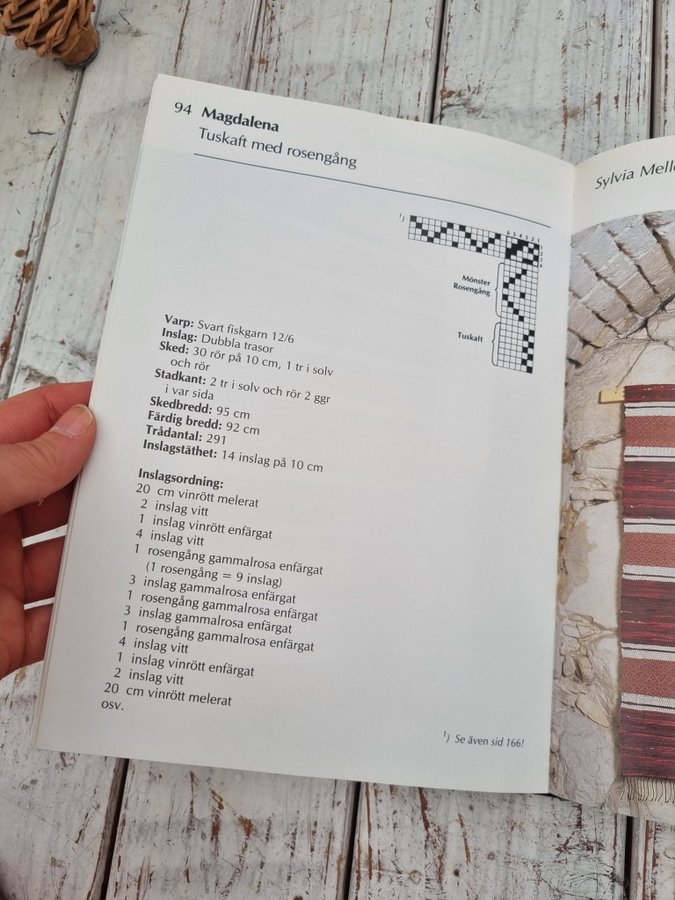 94 Magdalena
Tuskaft med rosengång
¹)
Mönster
Rosengång
Tuskaft
Varp: Svart fiskgarn 12/6
Inslag: Dubbla trasor
Sked: 30 rör på 10 cm, 1 tr i solv
och rör
Stadkant: 2 tr i solv och rör 2 ggr
i var sida
Skedbredd: 95 cm
Färdig bredd: 92 cm
Trådantal: 291
Inslagstäthet: 14 inslag på 10 cm
Inslagsordning:
20 cm vinrött melerat
2 inslag vitt
1 inslag vinrött enfärgat
4 inslag vitt
1 rosengång gammalrosa enfärgat
(1 rosengång = 9 inslag)
3 inslag gammalrosa enfärgat
1 rosengång gammalrosa enfärgat
3 inslag gammalrosa enfärgat
1 rosengång gammalrosa enfärgat
4 inslag vitt
1 inslag vinrött enfärgat
2 inslag vitt
20 cm vinrött melerat
osv.
¹) Se även sid 166!
Sylvia